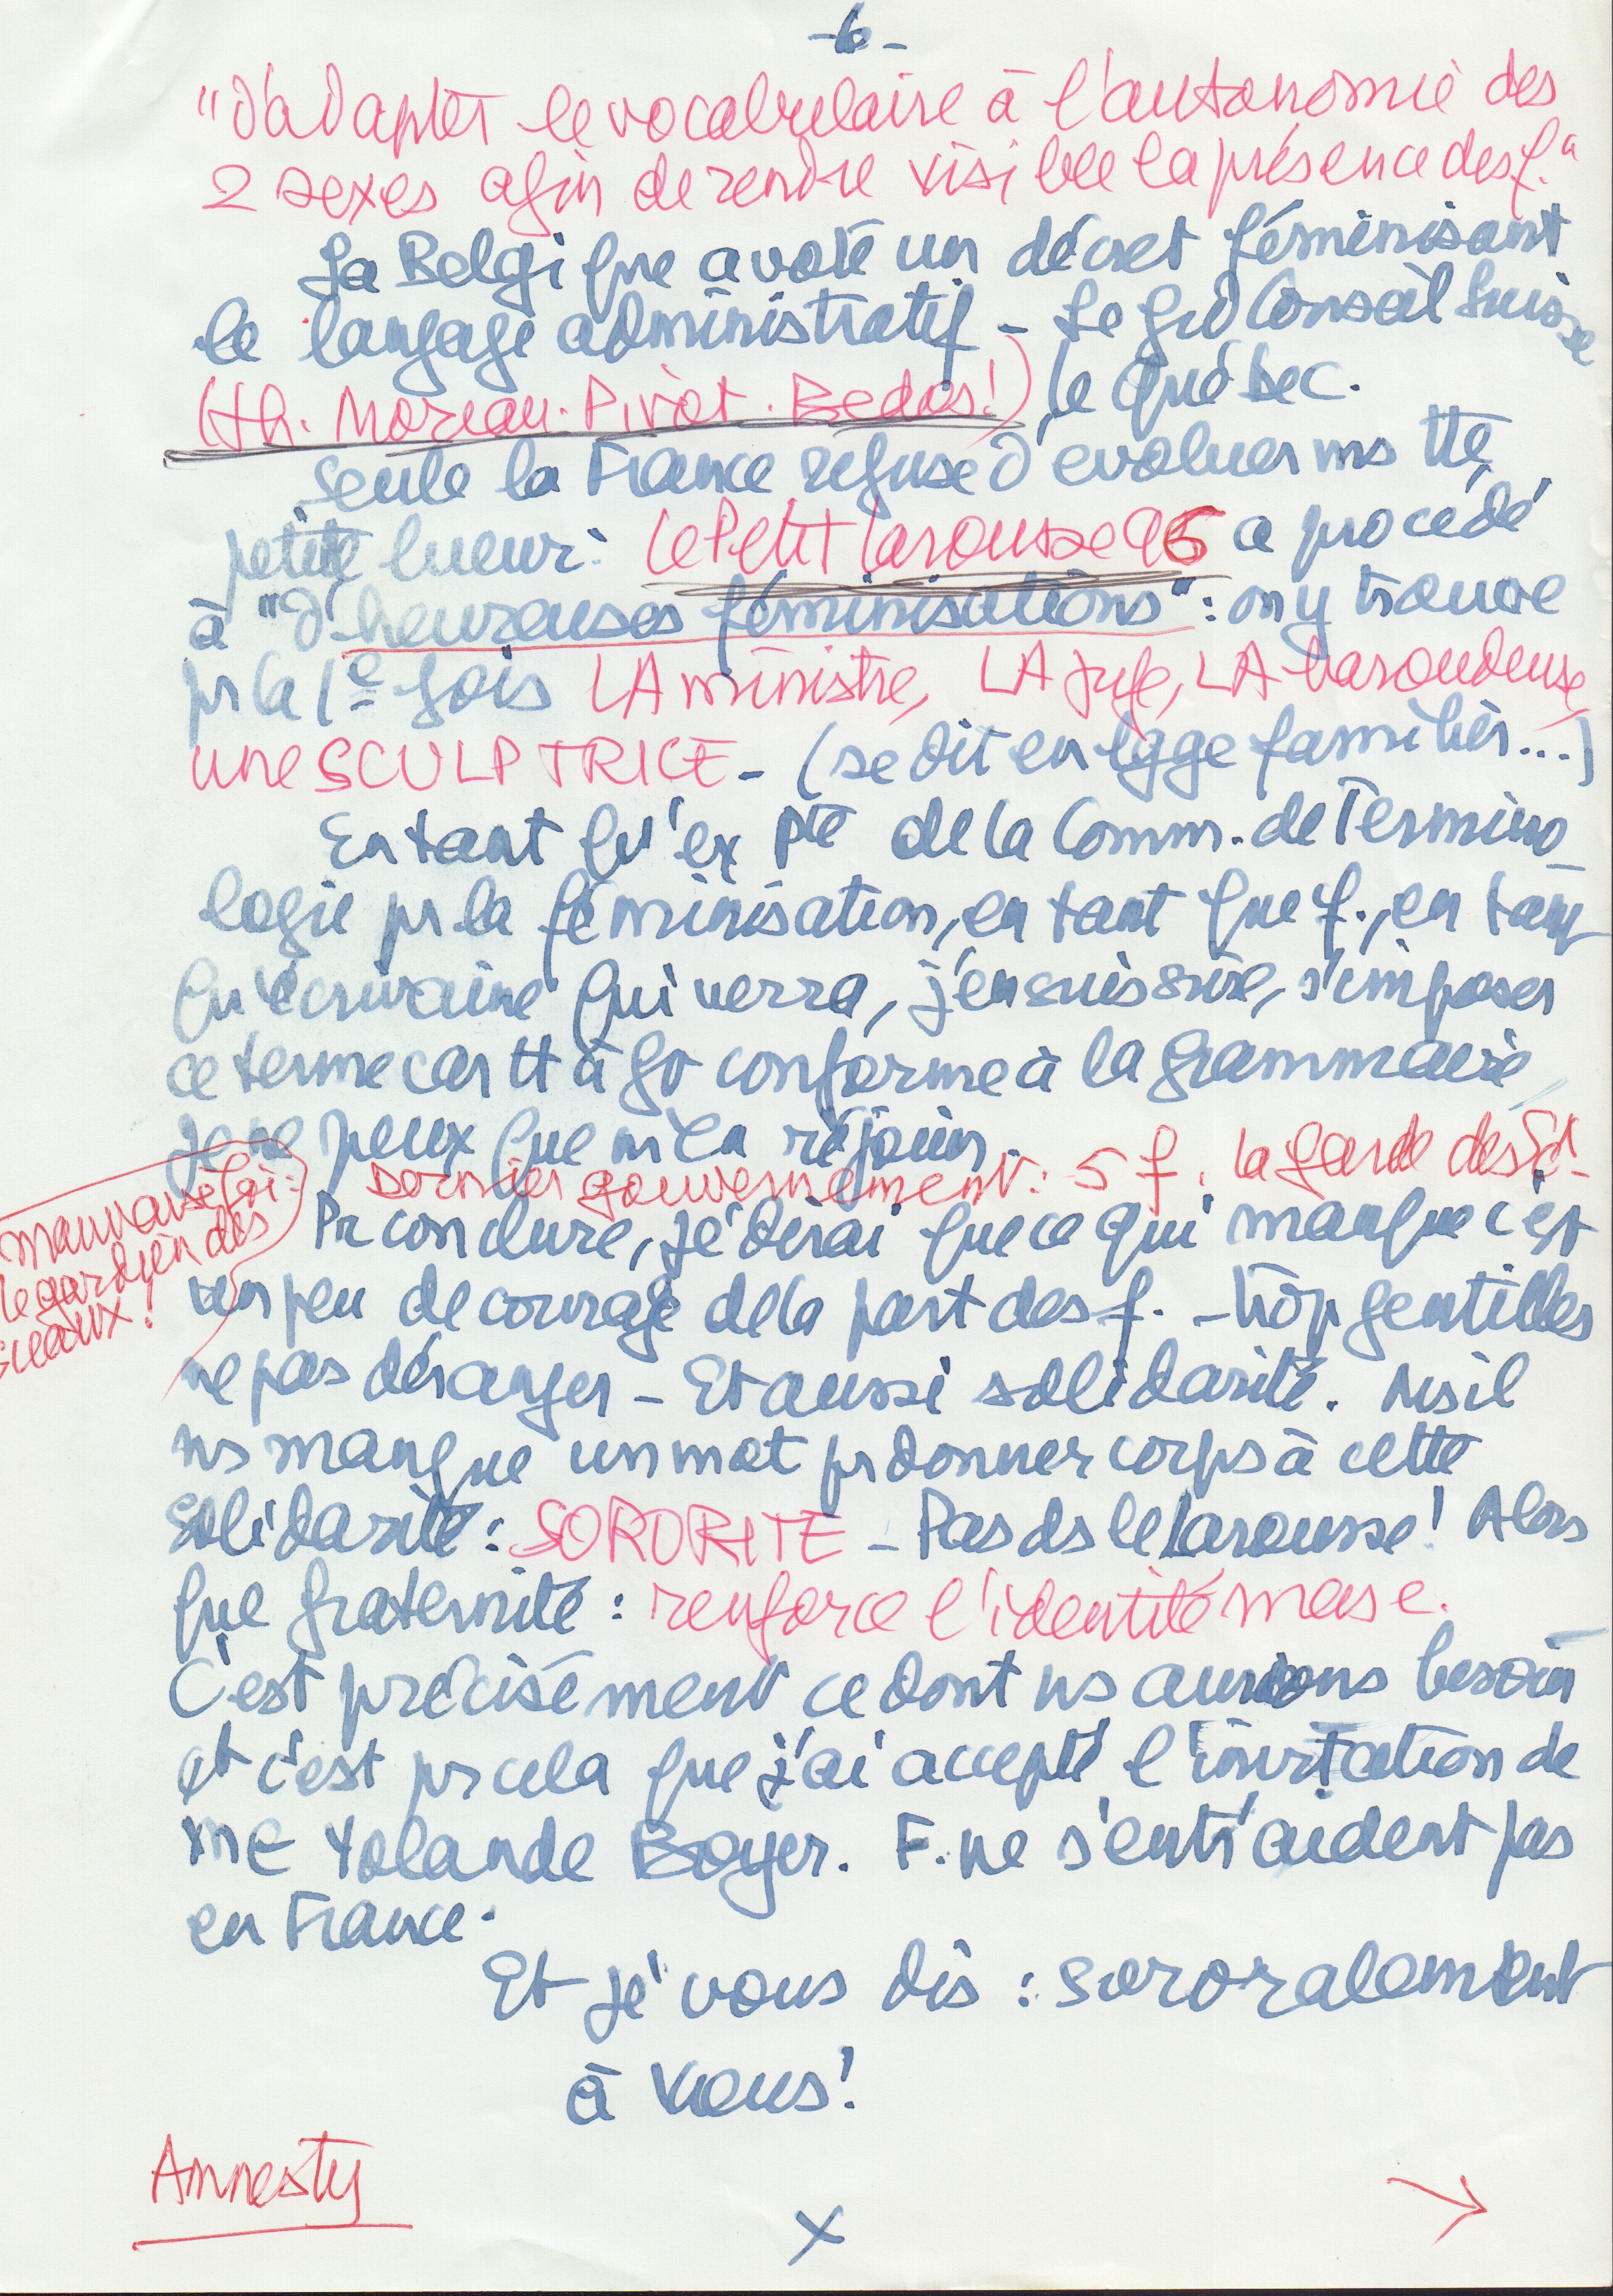 -6-
"d'adapter le vocabulaire à l'autonomie des
2 sexes afin de rendre visible la présence des f."
La Belgique a voté un décret féminisant
le langage administratif - Le Gd Conseil Suisse
(th. Moreau. Pivot. Bedos!) le Québec.
Seule la France refuse d'évoluer ms tte
petite lueur: Le Petit Larousse 96 a procédé
à "d'heureuses féminisations": on y trouve
pr la 1e fois LA ministre, LA juge, LA baroudeuse,
une SCULPTRICE - (se dit en lgge familier...)
En tant qu'ex Pte de la Comm. de Termino
logie pr la féminisation, en tant que f., en tant
qu'écrivaine qui verra, j'en suis sûre, s'imposer
ce terme car tt à ft conforme à la grammaire
je ne peux que m'en réjouir.
dernier gouvernement: 5 f. la garde des Sc.
mauvaise foi:
le gardien des
sceaux!
Pr conclure, je dirai que ce qui manque c'est
un peu de courage de la part des f. - trop gentilles
ne pas déranger - Et aussi solidarité. Ms il
ns manque un mot pr donner corps à cette
solidarité: SORORITE - Pas ds le Larousse! Alors
que fraternité: renforce l'identité masc.
C'est précisément ce dont ns aurions besoin
et c'est pr cela que j'ai accepté l'invitation de
Me Yolande Boyer. F. ne s'entr'aident pas
en France.
Et je vous dis : sororalement
à vous!
Amnesty